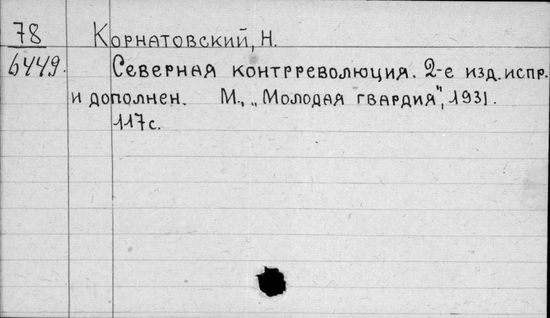 78 Корнатовский, Н.
6449. Северная контрреволюция. 2-е изд. испр.
и дополнен. М., „Молодая гвардия", 1931.
117с.